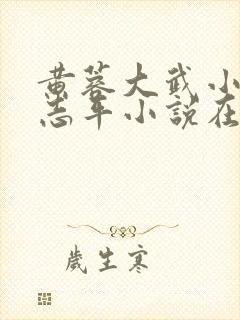 黄蓉大武小
志平小说在
岁生寒